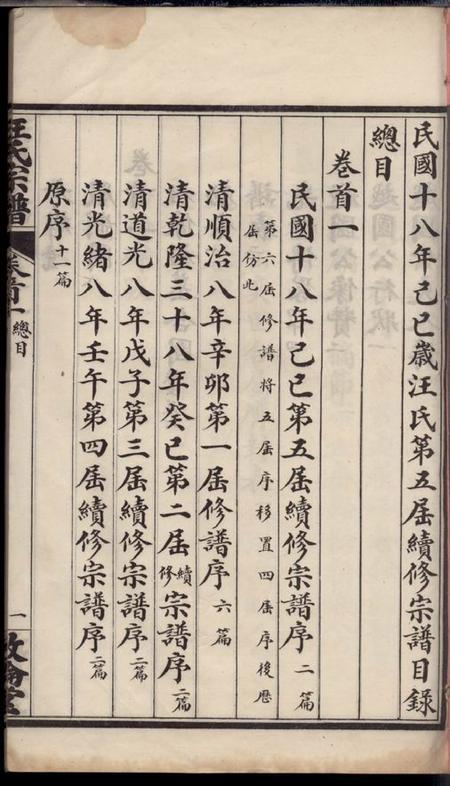 民國十八年己巳歲汪氏第五屆續修宗譜目錄
總目
卷首一
民國十八年己巳第五屆續修宗譜序二篇
第六屆修譜將五屆序移置四屆序後歷
屆仿此
清順治八年辛卯第一屆修譜序六篇
清乾隆三十八年癸巳第二屆續修宗譜序二篇
清道光八年戊子第三屆續修宗譜序二篇
清光緒八年壬午第四屆續修宗譜序二篇
原序十一篇
汪氏宗譜
卷首一總目
一